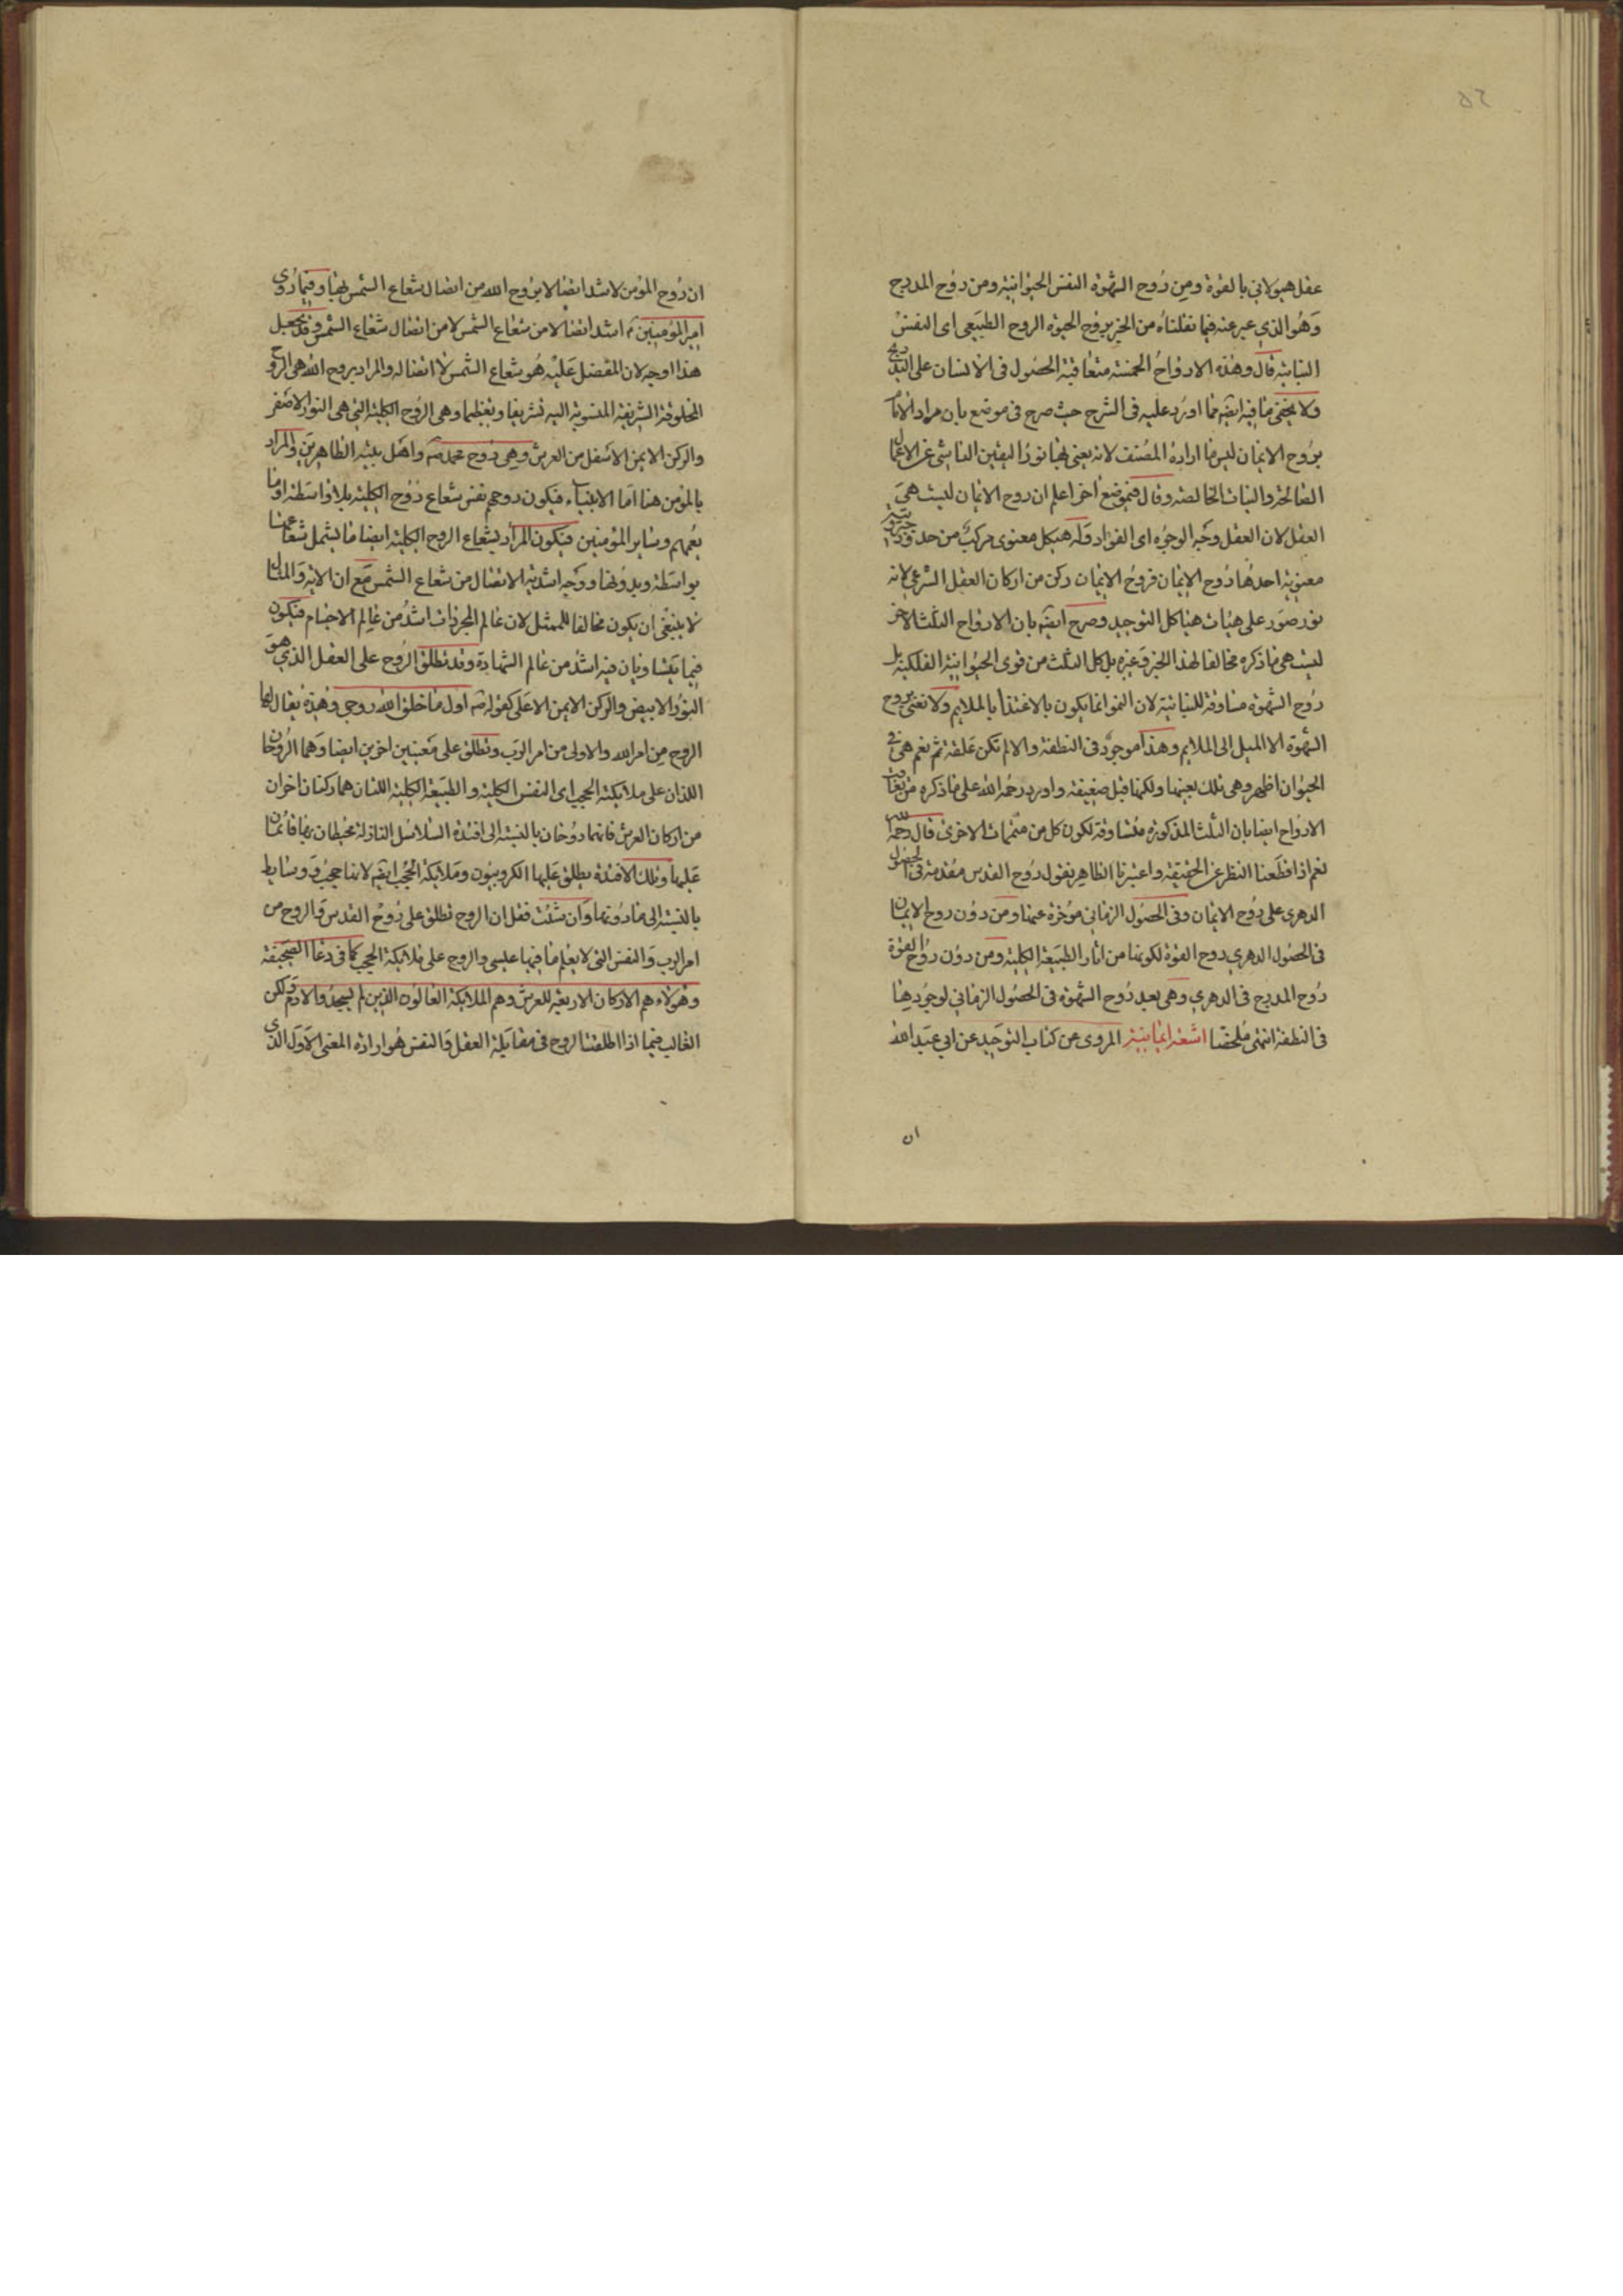 ٥٢
عقل هيولاني بالقوة ومن روح الشهوة النفس الحيوانية ومن روح المدرج
وهو الذي عبر عنه فيما نقلناه من الخبر بروح الحيوة الروح الطبيعي اى النفس
النباتية قال وهذه الارواح الخمسة متعاقبة الحصول في الانسان على التدريج
ولا يخفى ما فيه ايضا مما اورد عليه في الشرح حيث صرح في موضع بان مراد الامام
بروح الايمان ليس ما اراده المصنف لانه يعني بها نور اليقين الناشي عن الاعمال
الصالحة والنيات الخالصة وقال في موضع اخر اعلم ان روح الايمان ليست هي
العقل لان العقل وجه الوجود اى الفؤاد وله هيكل معنوى مركب من حدود جبروتية
معنوية احدها روح الايمان فروح الايمان ركن من اركان العقل الشرعي لانه
نور صور على هيات هياكل التوحيد وصرح ايضا بان الارواح الثلث الاخر
ليست هي ما ذكره مخالفا لهذا الخبر وغيره بل كل الثلث من قوى الحيوانية الفلكية بل
روح الشهوة مساوقة للنباتية لان النمو انما يكون بالاغتذا بالملايم ولا نعني بروح
الشهوة الا الميل الى الملايم وهذا موجود في النطفة والا لم تكن علقة ثم نعم هي في
الحيوان اظهر وهي تلك بعينها ولكنها قبل ضعيفة واورد رحمه الله على ما ذكره من تعاقب
الارواح ايضا بان الثلث المذكورة متساوقة لكون كل من متممات الاخرى قال رحمه الله
نعم اذا قطعنا النظر عن الحقيقة واعتبرنا الظاهر نقول روح القدس مقدمة في الحصول
الدهرى على روح الايمان وفي الحصول الزماني مؤخرة عنها ومن دون روح الايمان
في الحصول الدهري روح القوة لكونها من اثار الطبيعة الكلية ومن دون روح القوة
روح المدرج في الدهري وهي بعد روح الشهوة في الحصول الزماني لوجودها
في النطفة انتهى ملخصا اشعة ايمانية المروى عن كتاب التوحيد عن ابي عبد الله
ان
ان روح المؤمن لاشد اتصالا بروح الله من اتصال شعاع الشمس بها وفيما روى
امير المؤمنين اشد اتصالا من شعاع الشمس لا من اتصال شعاع الشمس وقد يجعل
هذا اوجه لان المفضل عليه هو شعاع الشمس لا اتصاله والمراد بروح الله هي الروح
المخلوقة الشريفة المنسوبة اليه تشريفا وتعظيما وهي الروح الكلية التي هي النور الاصفر
والركن الايمن الاسفل من العرش وهي روح محمد ص واهل بيته الطاهرين والمراد
بالمؤمن هنا اما الانبياء فيكون روحهم نفس شعاع روح الكلية بلا واسطة او ما
يعمهم وساير المؤمنين فيكون المراد بشعاع الروح الكلية ايضا ما يشمل شعاعها
بواسطة وبدونها ووجه اشدية الاتصال من شعاع الشمس مع ان الاية والمثال
لا ينبغي ان يكون مخالفا للممثل لان عالم المجردات اشد من عالم الاجسام فيكون
فيما يتساويان فيه اشد من عالم الشهادة وقد تطلق الروح على العقل الذي هو
النور الابيض والركن الايمن الاعلى كقوله ص اول ما خلق الله روحي وهذه يقال لها
الروح من امر الله والاولى من امر الرب وتطلق على معنيين اخرين ايضا وهما الروحان
اللذان على ملائكة الحجب اى النفس الكلية والطبيعة الكلية اللتان هما ركنان اخران
من اركان العرش فانهما روحان بالنسبة الى افئدة السلاسل النازلة محيطان بها قائمتان
عليها وتلك الافئدة يطلق عليها الكروبيون وملائكة الحجب ايضا لانها حجب ووسايط
بالنسبة الى مادونها وان شئت فقل ان الروح تطلق على روح القدس والروح من
امر الرب والنفس التي لا يعلم ما فيها عيسى والروح على ملائكة الحجب كما في دعاء الصحيفة
وهؤلاء هم الاركان الاربعة للعرش وهم الملائكة العالون الذين لم يسجدوا لادم ولكن
الغالب فيما اذا اطلقنا الروح في مقابلة العقل والنفس هو ارادة المعنى الاول الذي